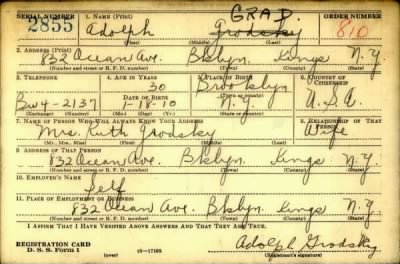 GRAD.
SERIAL NUMBER 1. NAME (Print) ORDER NUMBER
2855 Adolph Grodsky 810
(First) (Middle) (Last)
2. ADDRESS (Print)
832 Ocean Ave. Bklyn. Kings N.Y.
(Number and street or R. F. D. number) (Town) (County) (State)
3. TELEPHONE 4. AGE IN YEARS 5. PLACE OF BIRTH 6. COUNTRY OF CITIZENSHIP
30 Brooklyn
DATE OF BIRTH (Town or county)
Bu4-2137 1-18-10 N.Y. U.S.A.
(Exchange) (Number) (Mo.) (Day) (Yr.) (State or country)
7. NAME OF PERSON WHO WILL ALWAYS KNOW YOUR ADDRESS 8. RELATIONSHIP OF THAT PERSON
Mrs. Ruth Grodsky Wife
(Mr., Mrs., Miss) (First) (Middle) (Last)
9. ADDRESS OF THAT PERSON
832 Ocean Ave. Bklyn Kings N.Y.
(Number and street or R. F. D. number) (Town) (County) (State)
10. EMPLOYER'S NAME
Self
11. PLACE OF EMPLOYMENT OR BUSINESS
832 Ocean Ave. Bklyn. Kings N.Y.
(Number and street or R. F. D. number) (Town) (County) (State)
I AFFIRM THAT I HAVE VERIFIED ABOVE ANSWERS AND THAT THEY ARE TRUE.
REGISTRATION CARD
D. S. S. Form 1 (over) 16-17105 Adolph Grodsky
(Registrant's signature)